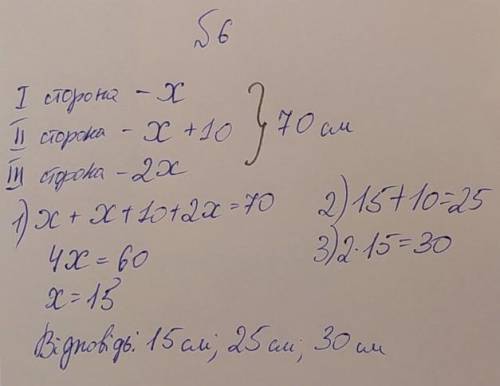 №6
I сторона – x
II сторона – x + 10 } 70 см
III сторона – 2x
1) x + x + 10 + 2x = 70
4x = 60
x = 15
2) 15 + 10 = 25
3) 2 · 15 = 30
Відповідь: 15 см; 25 см; 30 см